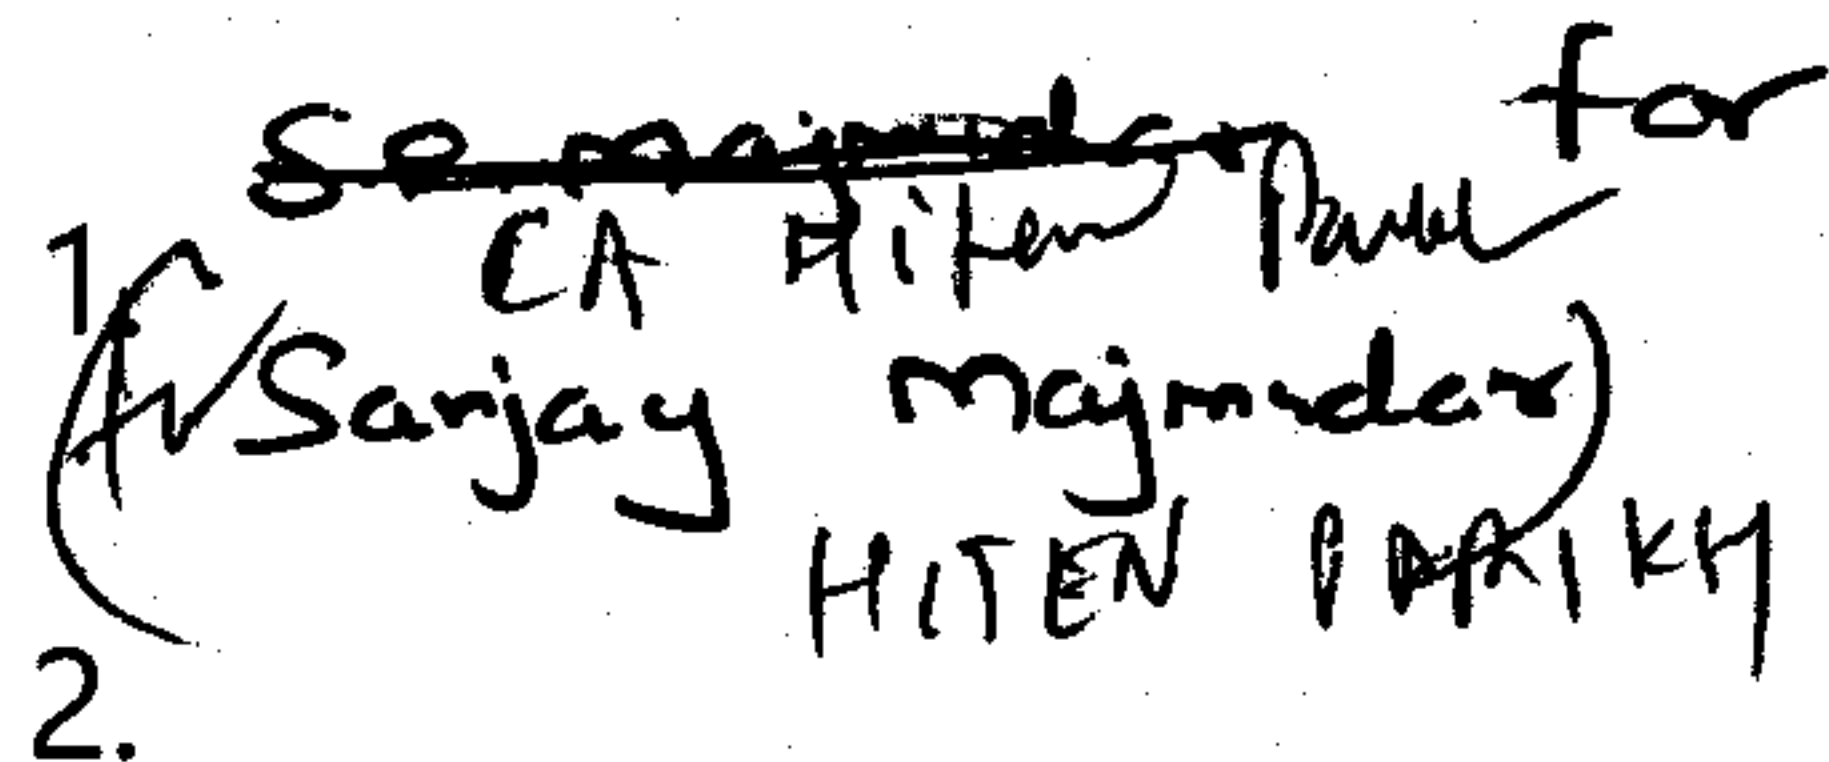 for
1. CA Hiten Parikh
Sanjay Majmudar)
HITEN PARIKH
2.